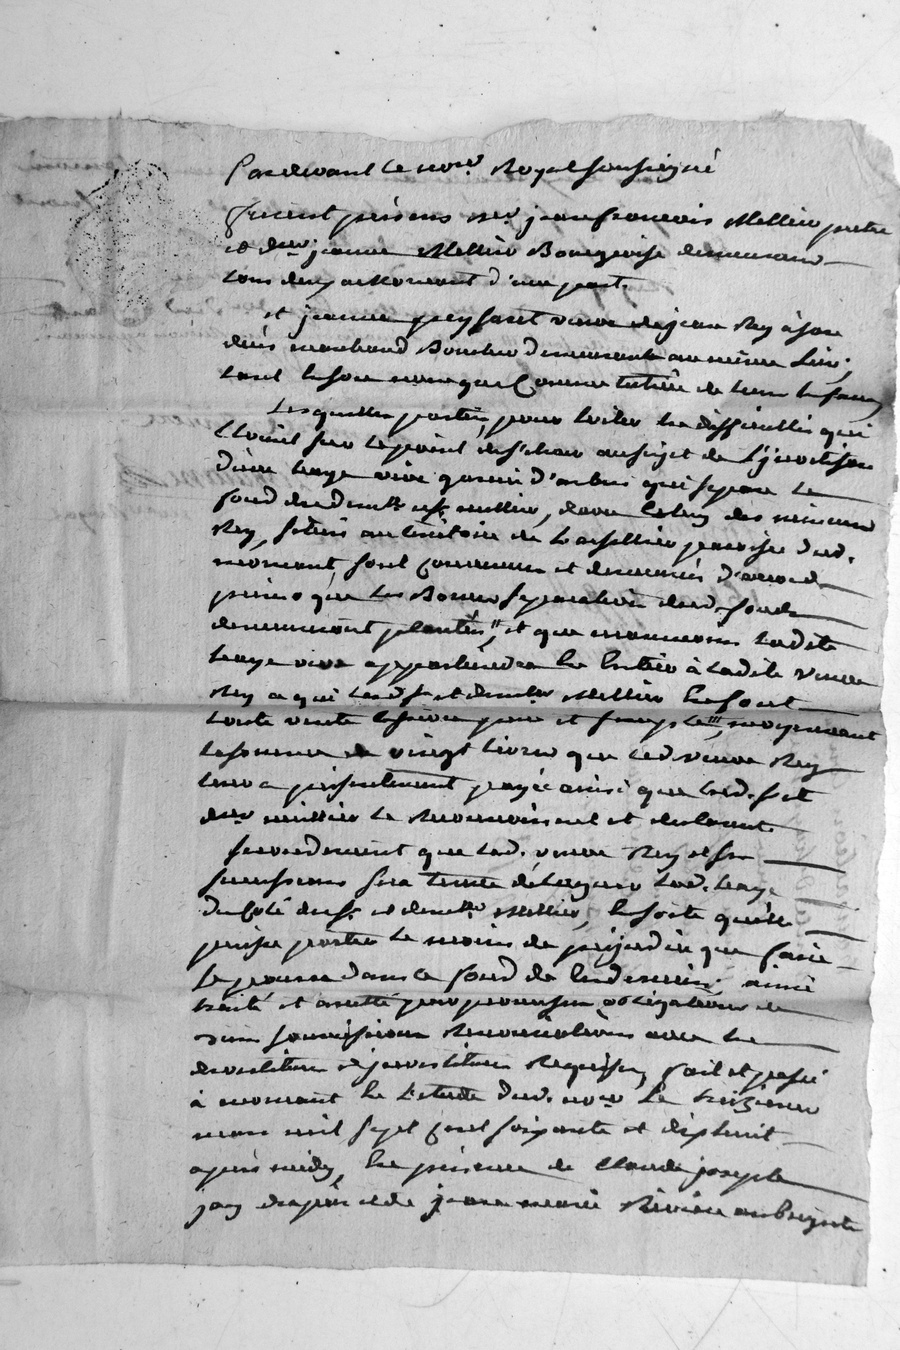 Pardevant le no.re Royal soussigné
furent présens m.re jean francois Mellier pretre
et d.lle jeanne Mellier Bourgeoise demeurans
tous deux a Mornant d'une part.
et jeanne peyssaret veuve de jean Rey à son
déces marchand Boucher demeurante au même lieu,
tant en son nom que Comme tutrice de leurs enfans
Lesquelles parties, pour éviter les difficultés qui
étoient sur le point de
d'une haye vive garnie d'arbres qui separe le
fond desdits s.r Mellier, davec celuy des mineurs
Rey, situés au territoire de paroisse dud.
mornant sont convenus et demeurés d'accord
primo que les Bornes separation desd. fonds
demeureront plantées, et que neanmoins ladite
haye vive appartiendra en entier à ladite veuve
Rey a qui lesd. s.r et demoiselle Mellier en font
toute vente pure et simple, moyennant
la somme de vingt livres que lad. veuve Rey
leur a présentement payée ainsi que lesd. s.r et
d.lle Mellier le reconnoissent et declarent
secondement que lad. veuve Rey et ses
successeurs sera tenue d'élaguer lad. haye
du Coté dud. s.r et demoiselle Mellier, en sorte quelle
puisse porter le moins de préjudice que faire
se pourra dans le fond de ces derniers, ainsi
traité et arretté par promesses obligations de
biens soumissions Renonciations avec les
devestitures et investitures Requises, fait et passé
à mornant en l'etude dud. no.re le treizieme
mars mil sept cent soixante et dixhuit
après midy, en présence de Claude joseph
et de jean marie Riviere